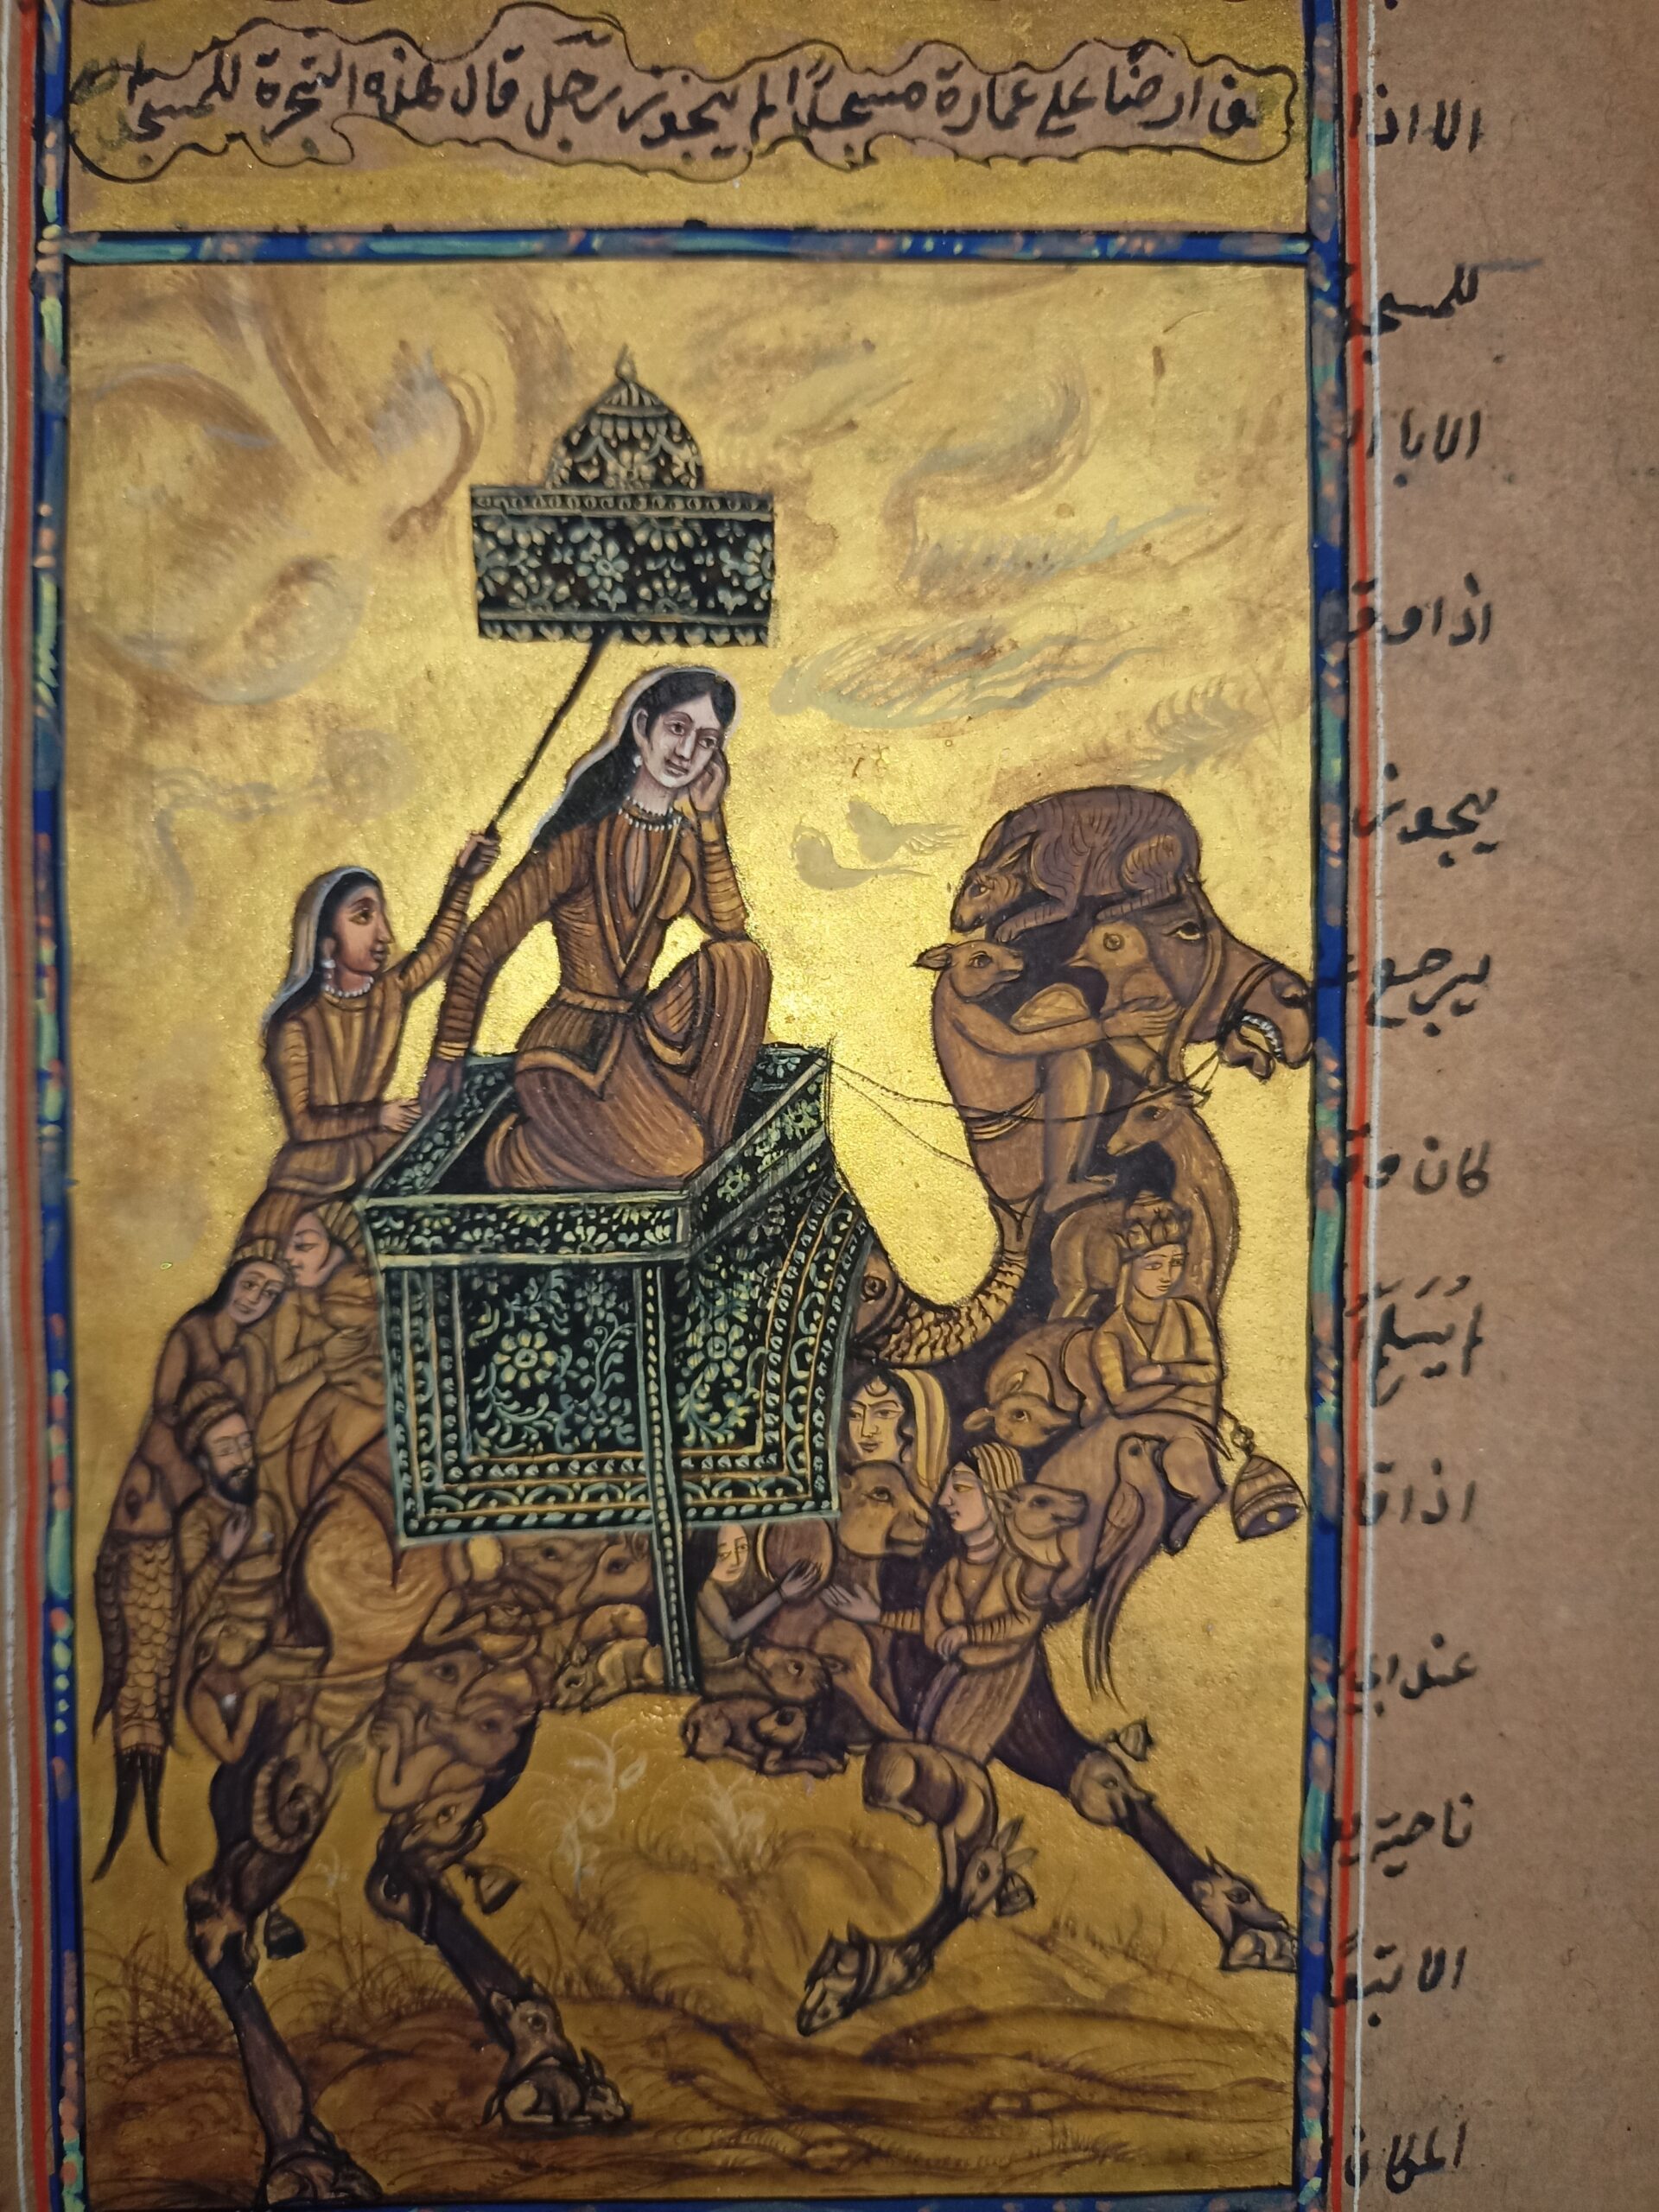 ارضا على عمارة مسجدا لم يجوز رجل قال هذه الشجرة للمسجد
الا اذا
للمسجد
الا با
اذا وق
يجوز
يرجع
كان
اذا
عند
ناحية
الا
المكان